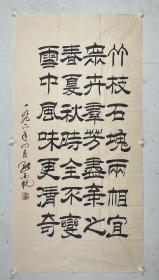 竹枝石塊兩相宜
衆卉羣芳盡棄之
春夏秋時全不變
雪中風味更清奇
一九九 年四月